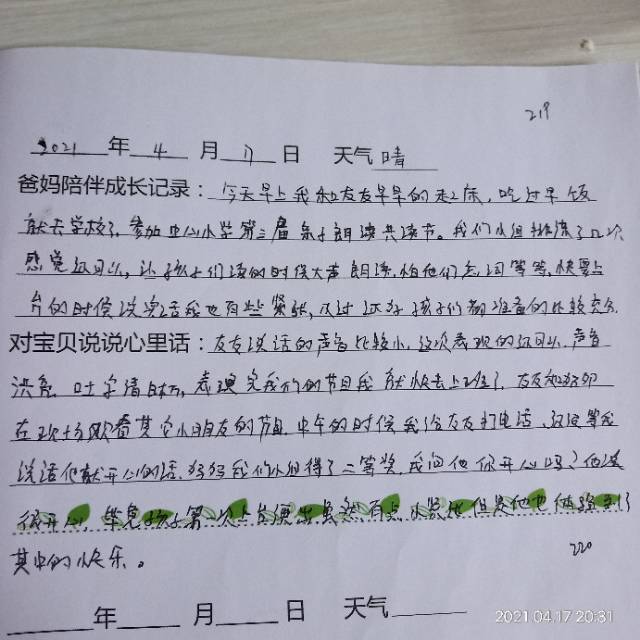 219
2021年 4 月 17 日 天气 晴
爸妈陪伴成长记录：今天早上我和友友早早的起床，吃过早饭
就去学校了，参加中心小学第三届亲子朗读共读节。我们小组排练了几次
感觉还可以，让孩子们读的时候大声朗读，怕他们忘词等等，快要上
台的时候说实话我也有些紧张，不过还好孩子们都准备的比较充分.
对宝贝说说心里话：友友说话的声音比较小，这次表现的还可以，声音
洪亮，吐字清晰，表演完我们的节目我就快去上班了，友友和妈妈
在现场观看其它小朋友的节目，中午的时候我给友友打电话，还没等我
说话他就开心的话，妈妈我们小组得了二等奖，我问他你开心吗？他说
很开心，毕竟孩子第一次上台演出虽然有点小紧张但是他也体验到了
其中的快乐。
220
年 月 日 天气
2021.04.17 20:31